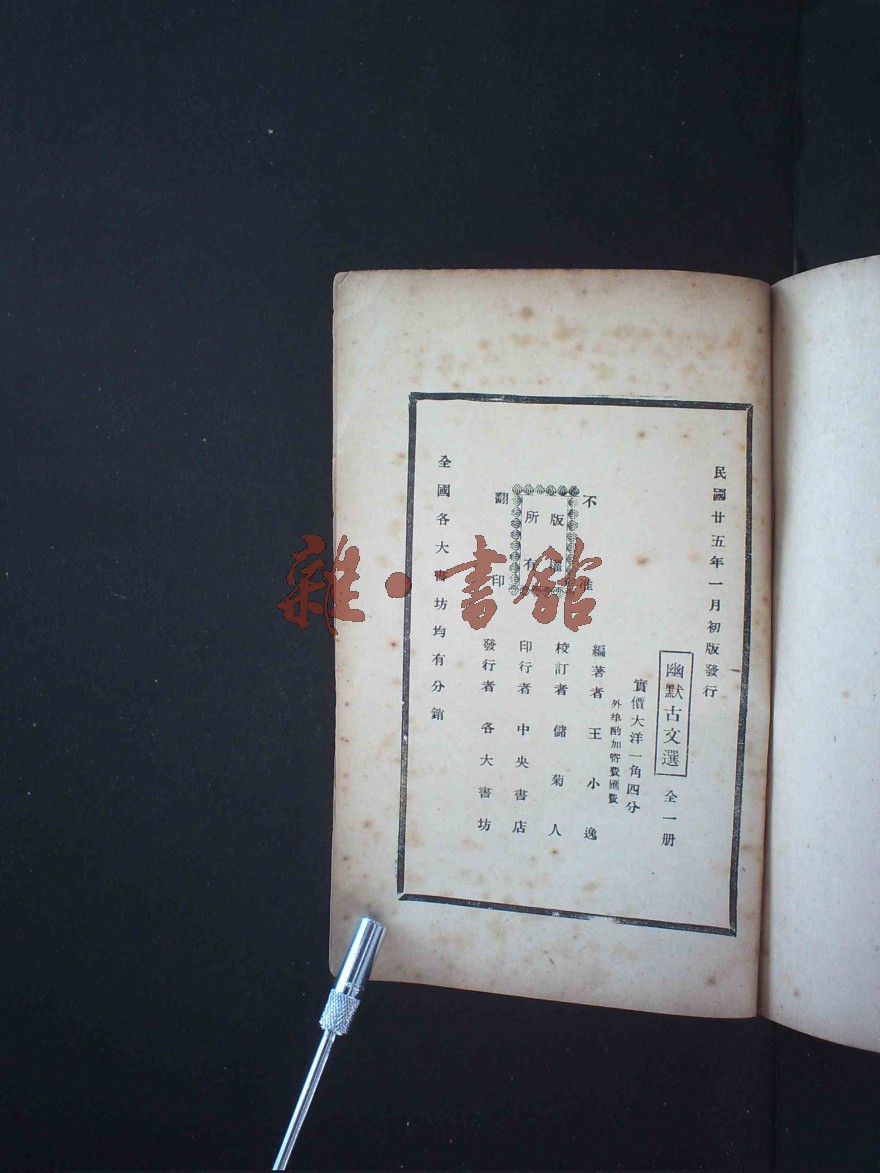 民國廿五年一月初版發行
幽默古文選 全一册
實價大洋一角四分
外埠酌加寄費匯費
編著者 王小逸
校訂者 儲菊人
印行者 中央書店
發行者 各大書坊
不准
版權
所有
翻印
全國各大書坊均有分銷
雜·書館